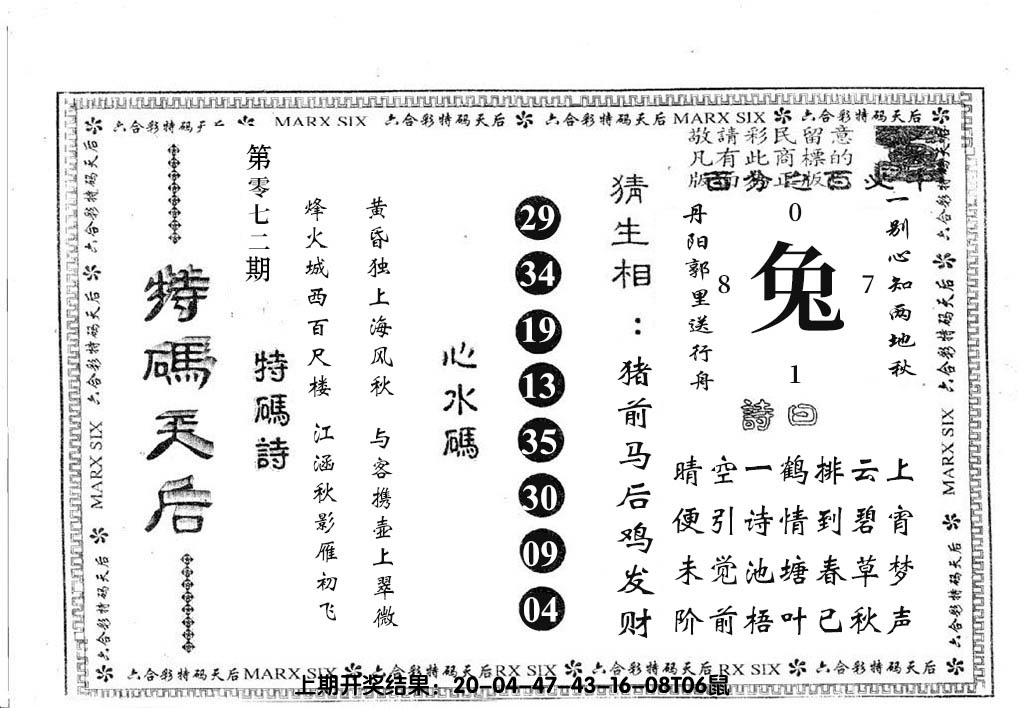 六合彩特码天后 MARX SIX 六合彩特码天后 六合彩特码天后 MARX SIX 六合彩特码天后
敬請彩民留意
凡有此商標的
版面为正版
一别心知两地秋
0
8 兔 7
1
丹阳郭里送行舟
詩曰
晴空一鹤排云上
便引诗情到碧宵
未觉池塘春草梦
阶前梧叶已秋声
猜生相：猪前马后鸡发财
29
34
19
13
35
30
09
04
心水碼
黄昏独上海风秋
与客携壶上翠微
烽火城西百尺楼
江涵秋影雁初飞
特碼詩
第零七二期
特碼天后
六合彩特码天后 MARX SIX 六合彩特码天后 六合彩特码天后
六合彩特码天后 六合彩特码天后 MARX SIX 六合彩特码天后
六合彩特码天后 MARX SIX 六合彩特码天后 RX SIX 六合彩特码天后 RX SIX 六合彩特码天后
上期开奖结果：20-04-47-43-16-08T06鼠